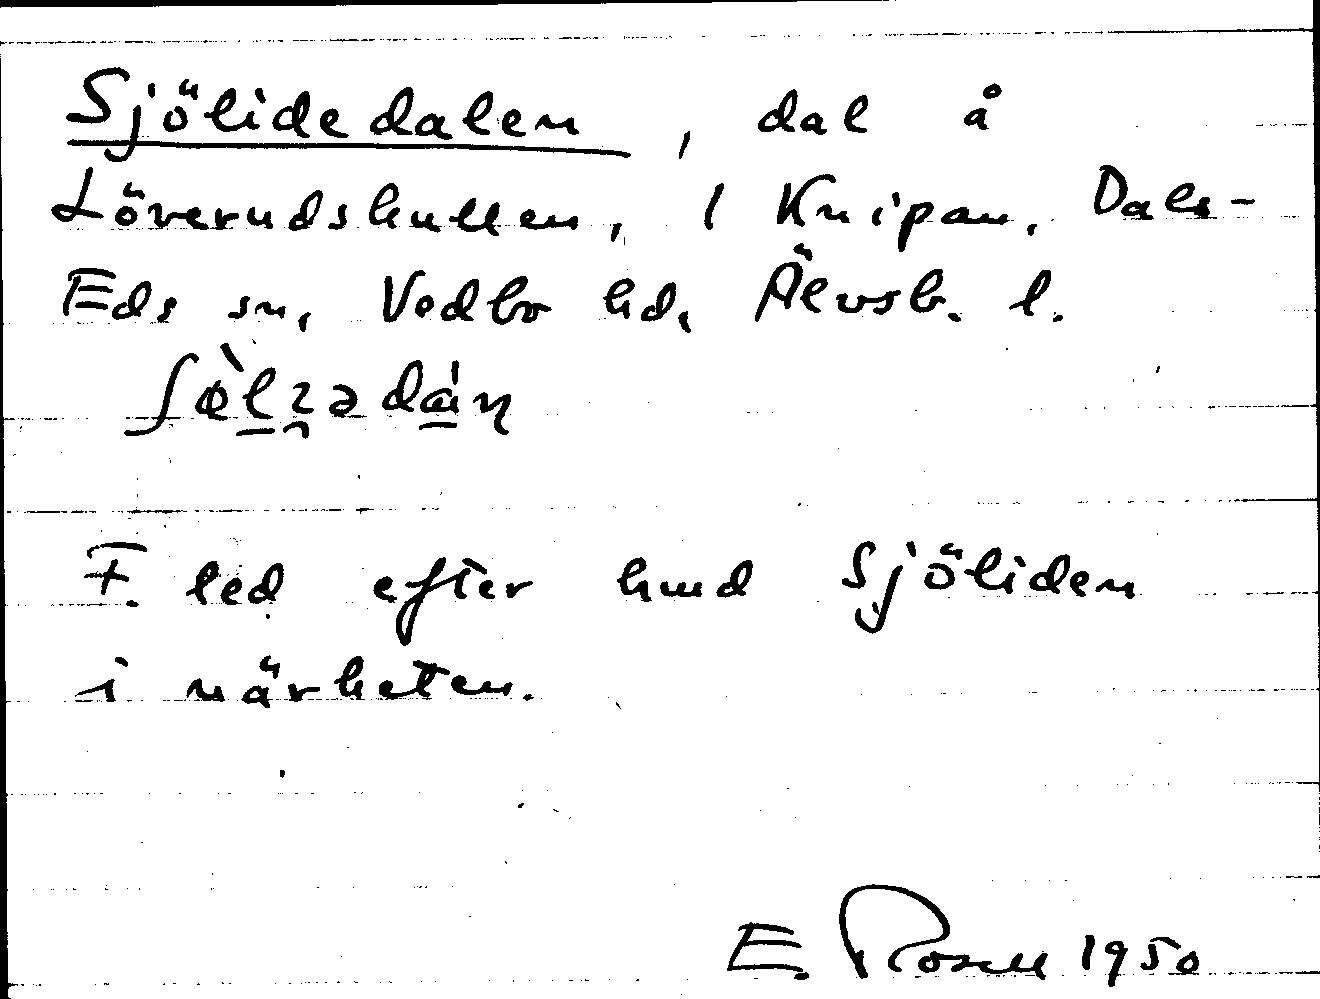 Sjölidedalen, dal å
Löverudskullen, 1 Knipan, Dals-
Eds sn, Vedbo hd, Älvsb. l.
F. led efter hmd Sjöliden
i närheten.
E. Rosell 1950